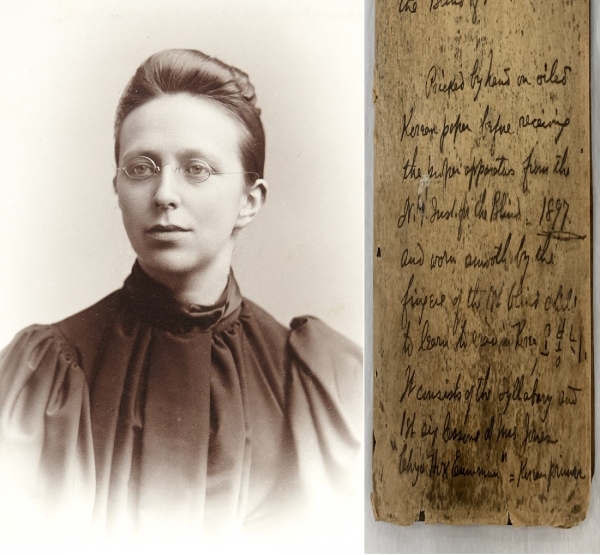 the Blind by
Pricked by hand on oiled
Korean paper before receiving
the proper apparatus from the
N.Y. Inst. for the Blind – 1897.
and worn smooth by the
fingers of the 1st blind child
to learn to read in Korea,
It consists of the syllabary and
1st lessons of Mrs Jones
= Korean primer